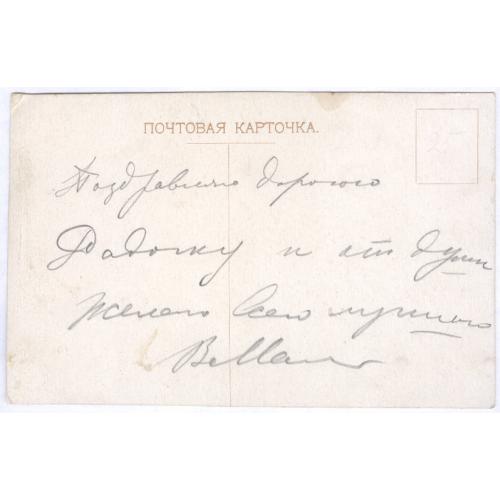 ПОЧТОВАЯ КАРТОЧКА.
Поздравляю дорогого
и от души
желаю всего лучшего